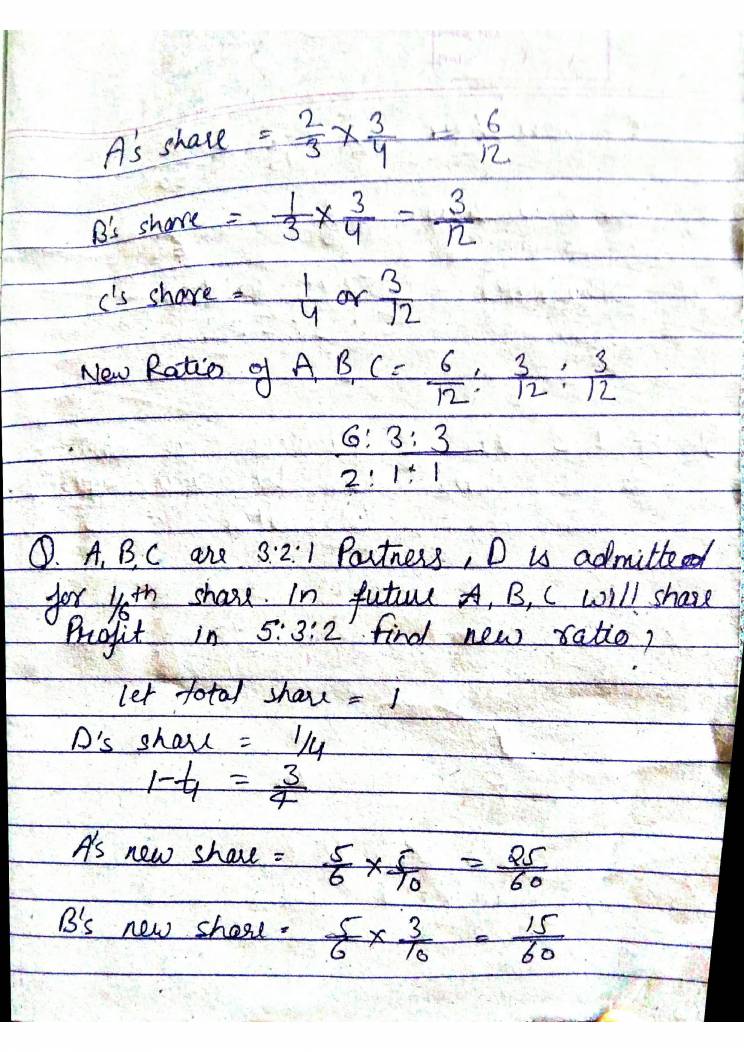 A's share = 2/3 × 3/4 = 6/12
B's share = 1/3 × 3/4 = 3/12
C's share = 1/4 or 3/12
New Ratio of A, B, C = 6/12 : 3/12 : 3/12
6 : 3 : 3
2 : 1 : 1
Q. A, B, C are 3:2:1 Partners, D is admitted
for 1/6th share. In future A, B, C will share
Profit in 5:3:2 find new ratio?
let total share = 1
D's share = 1/4
1-1/4 = 3/4
A's new share = 5/6 × 5/10 = 25/60
B's new share = 5/6 × 3/10 = 15/60